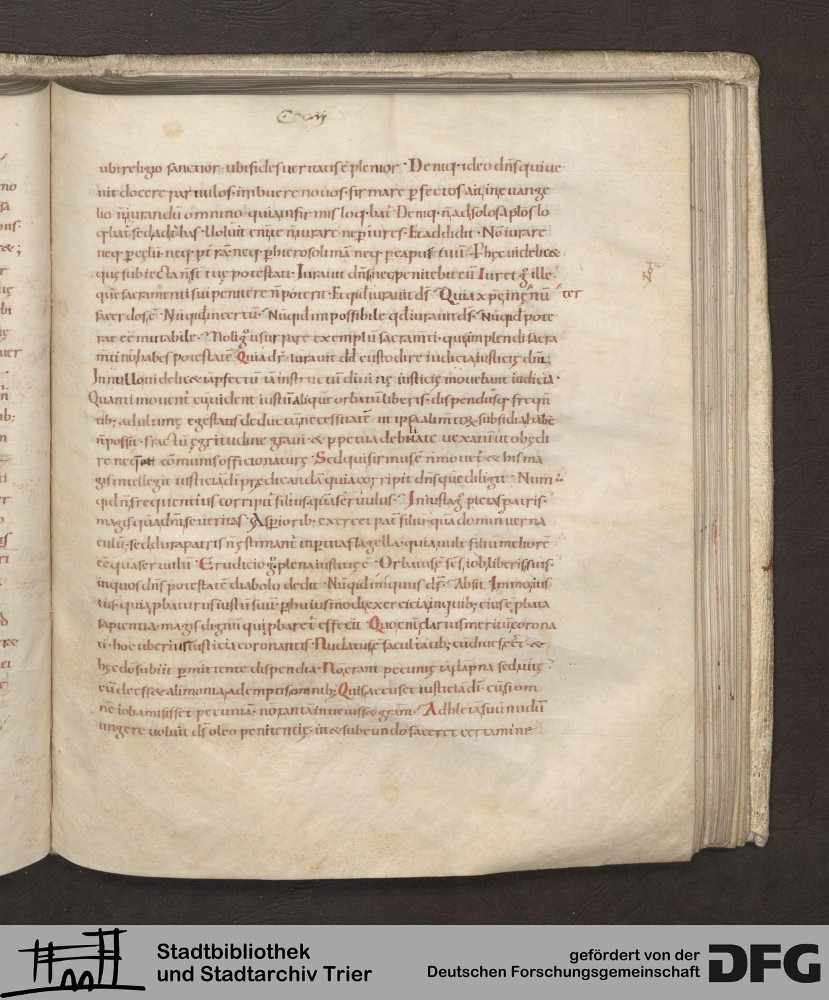 ubi religio sanctior · ubi fides ueritatis ē plenior · Deniq; ideo dn̄s qui ue
nit docere paruulos · imbuere nouos · firmare pfectos ait in euange
lio
omnino · quia infirmis loq̄bat̄ Deniq; n̄ ad solos aplos lo
q̄bat̄ sed ad turbas · Noluit enī te n̄ iurare ne piures · Et addidit · Nō iurare
neq; p celū · neq; p terrā · neq; p hierosolimā neq; p caput tuū ·
quę subiecta n̄ st tuę potestati · Iurauit dn̄s · neq; penitebit eū Iuret g̊ ille ·
quē sacramenti sui penitere n̄ poterit · Et qd iurauit ds̄ · Quia xp̄s in ęt̄nū
sacerdos ē · Nūquid incertū · Nūquid impossibile qd iurauit ds̄ · Nūquid pote
rat ee mutabile · Noli g̊ usurpare exemplū sacramti · qui implendi sacra
mti n̄ habes potestatē Quia
iurauit dd custodire iudicia iusticię dni
In nullo uidelic& iā pfectū iā instructū diuinę iusticię mouebant iudicia ·
Quanti mouent̄ cū uident iustū aliquē orbatū liberis · dispendiisq; freq̄n
tib; adultimę egestatis deductū necessitatē ut ipsa alimtoꝝ subsidia habe
n̄ possit · fractū ęgritudine graui · & ppetua debilitate uexatū ut obedi
re neq̄at comunis officio naturę · Sed qui firmus ē n̄ mouet̄ & his ma
gis intellegit iusticiā di prędicandā quia corripit dn̄s quē diligit · Num
qd n̄ frequentius corripit̄ filius quā seruulus · Iniusta g̊ pietas patris ·
magis quā dn̄i seueritas · Asperiorib; exercet pat̄ filiū quā dominus uerna
culū · sed dura patris n̄ ęstimant̄ inpituas flagella · quia uult filiū meliorē
ee quā seruulū · Erudicio g̊ plena iusticię · Orbatus ē scs iob liberis suis ·
in quos dn̄s potestatē diabolo dedit · Nūquid iniquus ds̄ · Absit · Immo ius
tus · quia pbaturus iustū suū · p huiusmodi exercicia, in quib; eius ę pbata
sapientia · magis dignū qui pbaret̄ effecit · Quo enī clarius meritū, corona
ti · hoc uberius iusticia coronantis · Nudatus ē facultatib; cū diues eet · &
hęc do subiit pmittente dispendia · Nō erant pecunię iā
sed uitę ·
cū deess& alimonia, ademptis omnib; Quis accuset iusticiā di · cū si om
ne iob amisisset pecuniā · nō tantā inueniss&
· Adhletā suū nudū
ungere uoluit ds̄ oleo penitentię · ut & subeundo faceret certamine
Stadtbibliothek
und Stadtarchiv Trier
gefördert von der
Deutschen Forschungsgemeinschaft
DFG